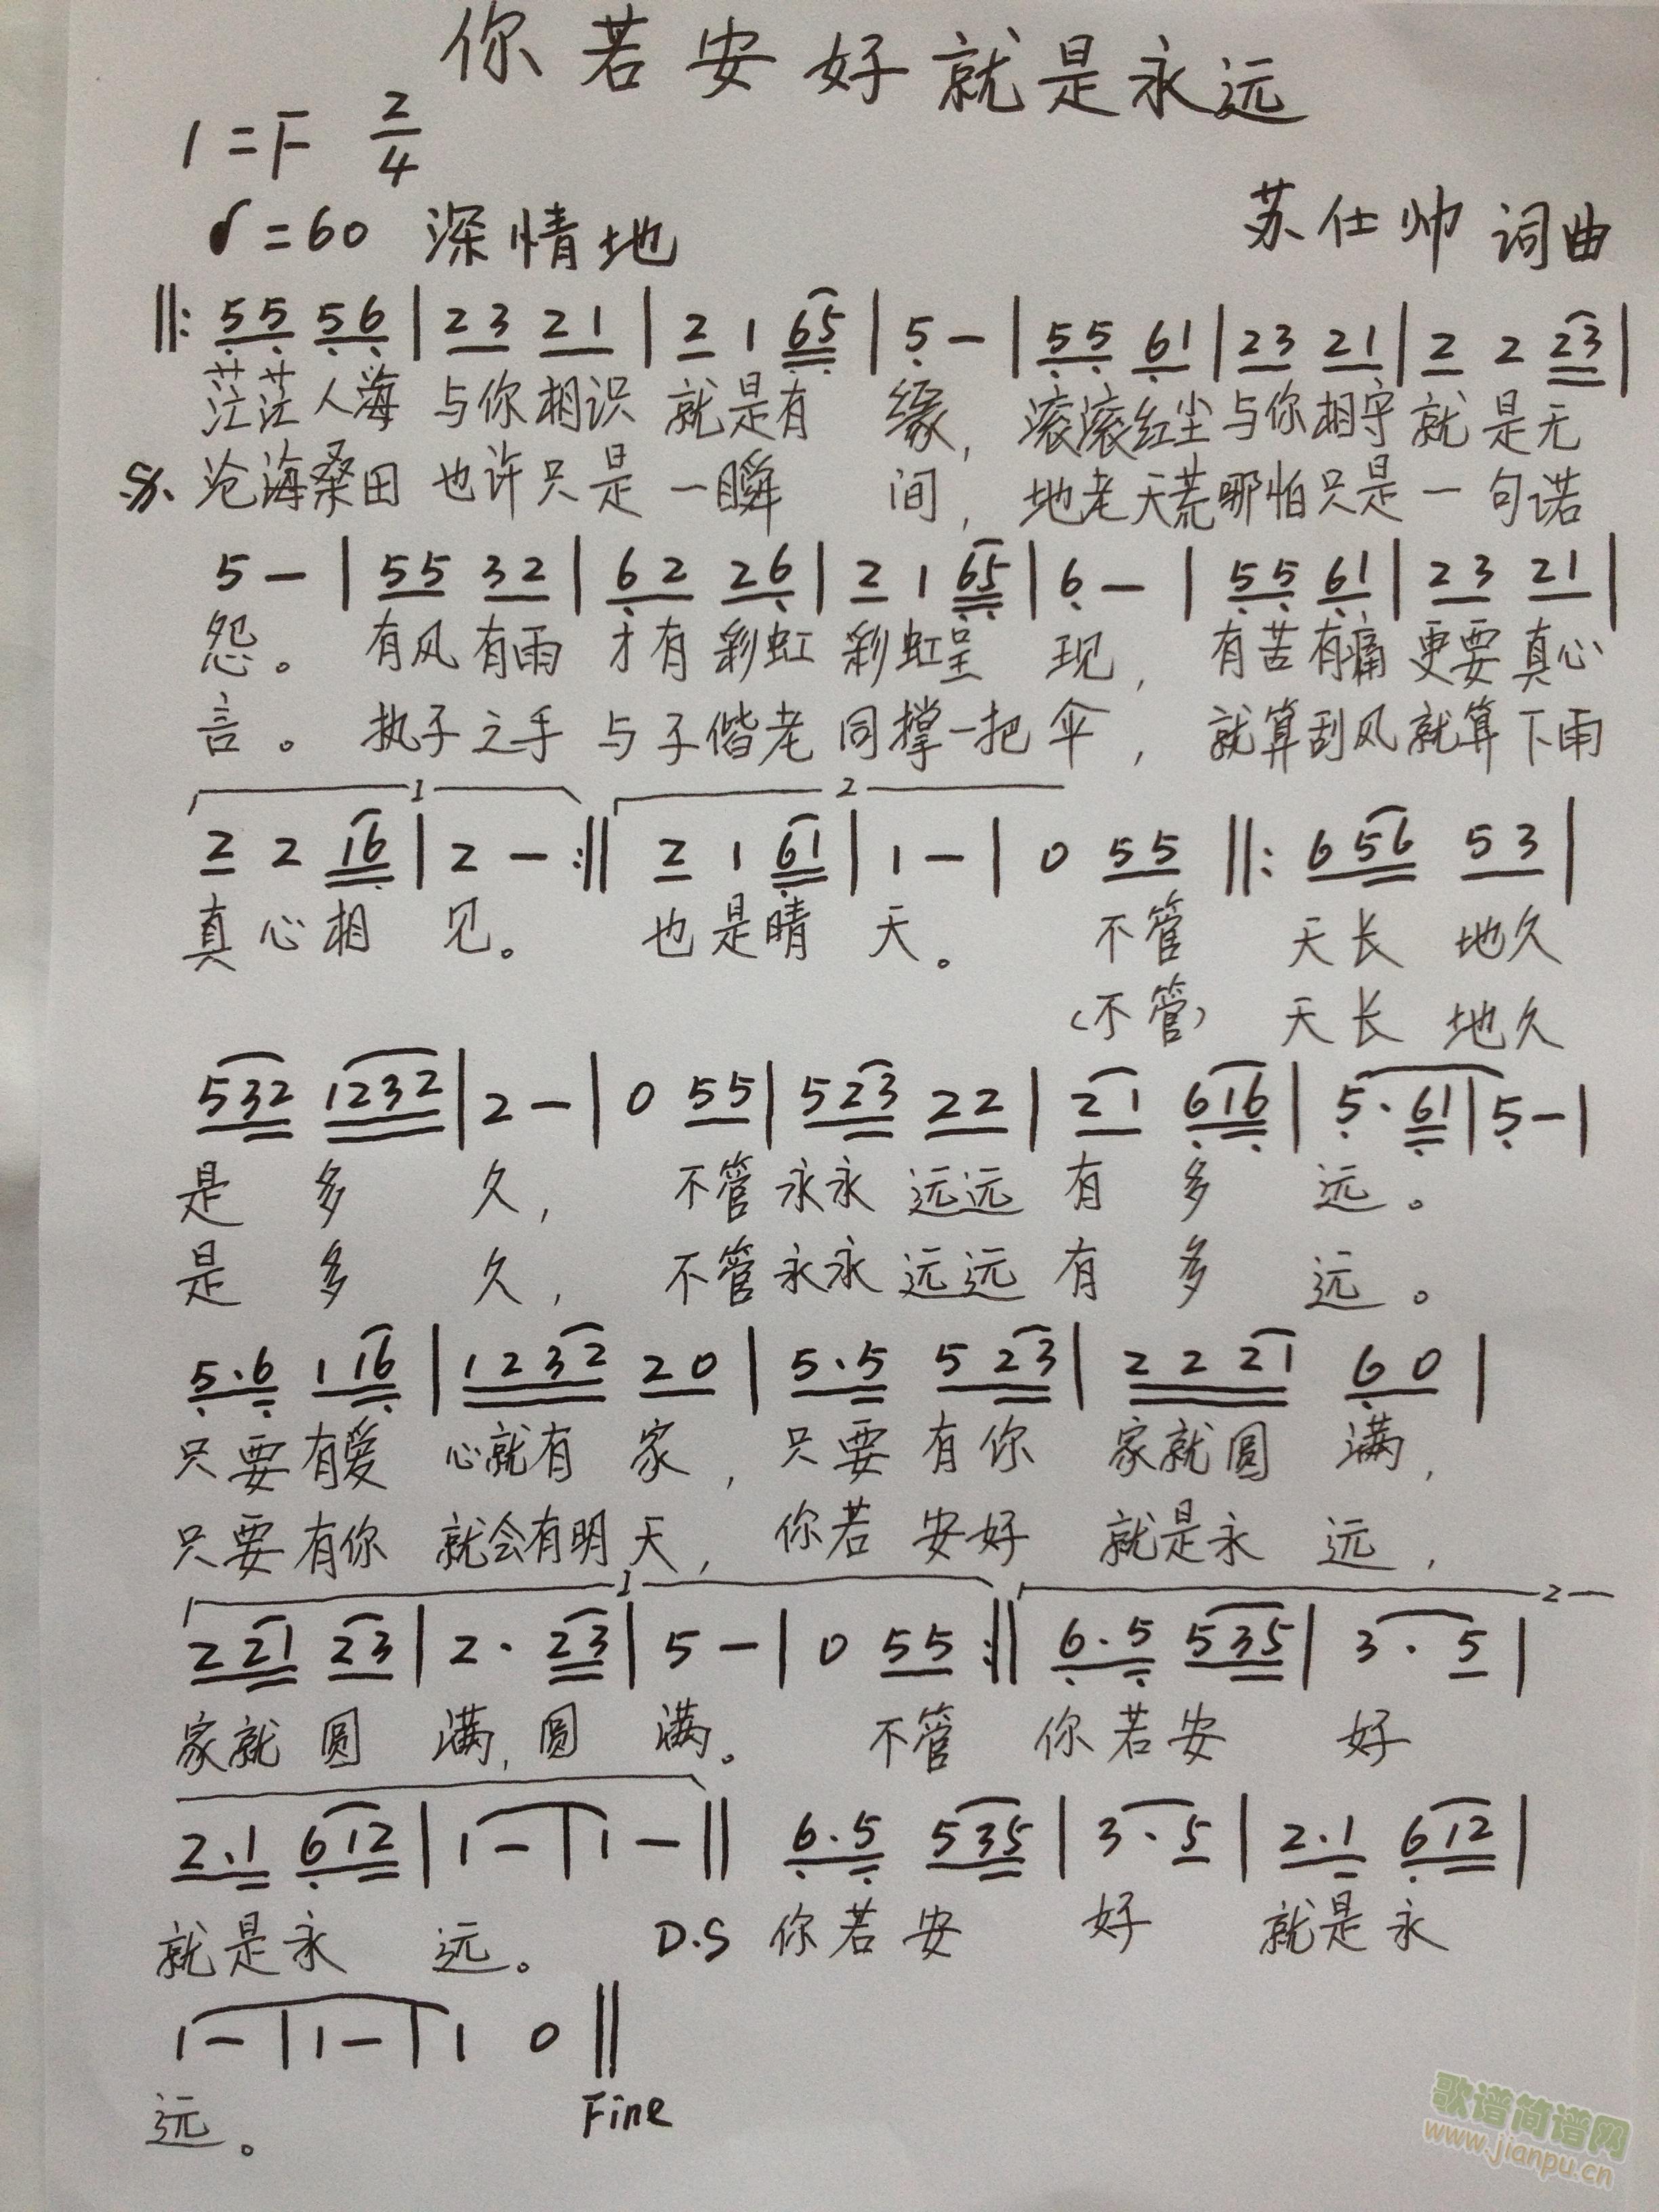 你若安好就是永远
1=F 2/4
♩=60 深情地 苏仕帅 词曲
‖: 55 56 | 23 21 | 2 1 65 | 5 - | 55 61 | 23 21 | 2 2 23 |
茫茫人海 与你相识 就是有 缘, 滚滚红尘与你相守就是无
𝄋 沧海桑田 也许只是 一瞬 间, 地老天荒哪怕只是一句诺
5 - | 55 32 | 62 26 | 2 1 65 | 6 - | 55 61 | 23 21 |
怨。 有风有雨 才有彩虹 彩虹呈 现, 有苦有痛 更要真心
言。 执子之手 与子偕老 同撑一把 伞, 就算刮风就算下雨
1 2
2 2 16 | 2 - :‖ 2 1 61 | 1 - | 0 55 ‖: 656 53 |
真心相 见。 也是晴 天。 不管 天长 地久
(不管) 天长 地久
532 1232 | 2 - | 0 55 | 523 22 | 21 616 | 5· 61 | 5 - |
是 多 久, 不管永永 远远 有 多 远。
是 多 久, 不管永永 远远 有 多 远。
5·6 116 | 1232 20 | 5·5 523 | 2221 60 |
只要有爱 心就有 家, 只要 有你 家就圆 满,
只要有你 就会有明天, 你若 安好 就是永 远,
1 2
221 23 | 2· 23 | 5 - | 0 55 :‖ 6·5 535 | 3· 5 |
家就 圆 满,圆 满。 不管 你若安 好
2·1 612 | 1 - | 1 - ‖ 6·5 535 | 3· 5 | 2·1 612 |
就是永 远。 D.S 你若安 好 就是永
1 - | 1 - | 1 0 ‖
远。 Fine
歌谱简谱网
www.jianpu.cn